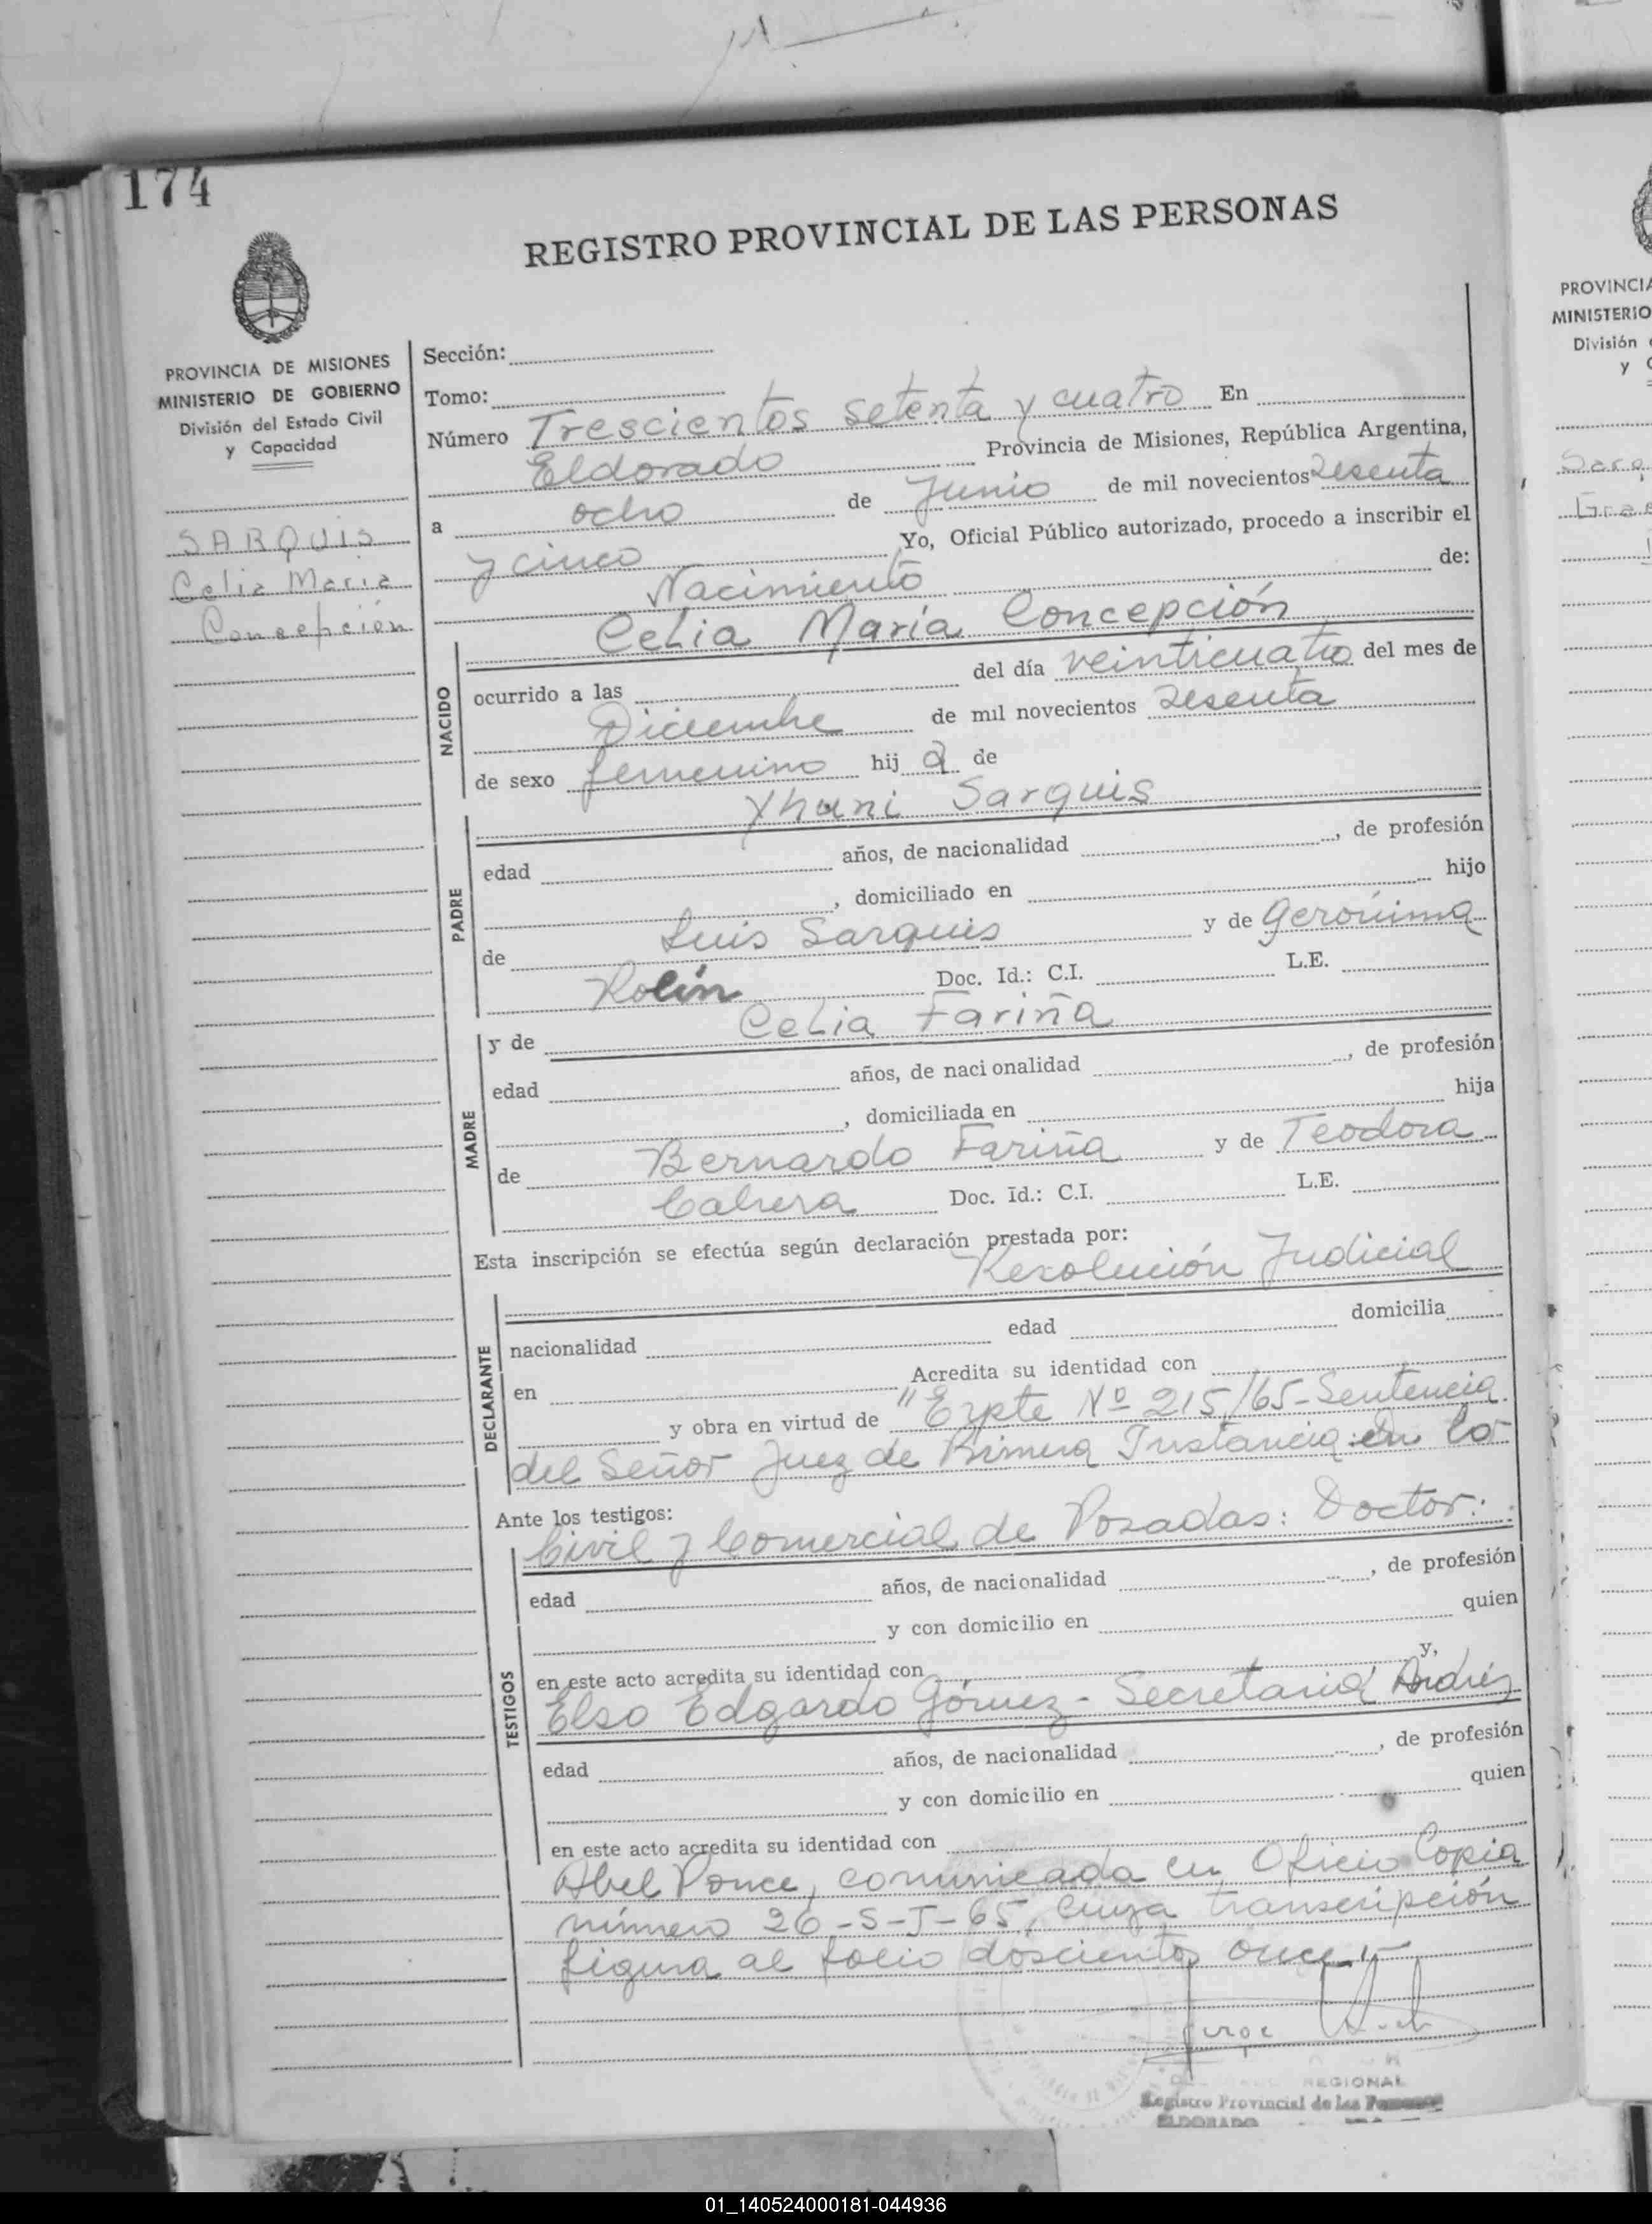 174
REGISTRO PROVINCIAL DE LAS PERSONAS
PROVINCIA DE MISIONES
MINISTERIO DE GOBIERNO
División del Estado Civil
y Capacidad
SARQUIS
Celia Maria
Concepción
Sección:
Tomo:
Número Trescientos setenta y cuatro En
Eldorado Provincia de Misiones, República Argentina,
a ocho de Junio de mil novecientos sesenta
y cinco Yo, Oficial Público autorizado, procedo a inscribir el
Nacimiento de:
Celia María Concepción
NACIDO
ocurrido a las del día veinticuatro del mes de
Diciembre de mil novecientos sesenta
de sexo femenino hij a de
Yhani Sarquis
PADRE
edad años, de nacionalidad , de profesión
, domiciliado en hijo
de Luis Sarquis y de Gerónima
Rolín Doc. Id.: C.I. L.E.
y de Celia Fariña
MADRE
edad años, de nacionalidad , de profesión
, domiciliada en hija
de Bernardo Fariña y de Teodora
Cabrera Doc. Id.: C.I. L.E.
Esta inscripción se efectúa según declaración prestada por:
Resolución Judicial
DECLARANTE
nacionalidad edad domicilia
en Acredita su identidad con
y obra en virtud de "Expte Nº 215/65-Sentencia
del Señor Juez de Primera Instancia en lo
Ante los testigos:
Civil y Comercial de Posadas: Doctor:
TESTIGOS
edad años, de nacionalidad , de profesión
y con domicilio en quien
en este acto acredita su identidad con y,
Elso Edgardo Gómez - Secretaria Andrés
edad años, de nacionalidad , de profesión
y con domicilio en quien
en este acto acredita su identidad con
Abel Ponce, comunicada en Oficio Copia
número 26-S-J-65, cuya transcripción
figura al folio doscientos once.-
REGIONAL
Registro Provincial de las Personas
ELDORADO
PROVINCIA
MINISTERIO
División
y
01_140524000181-044936